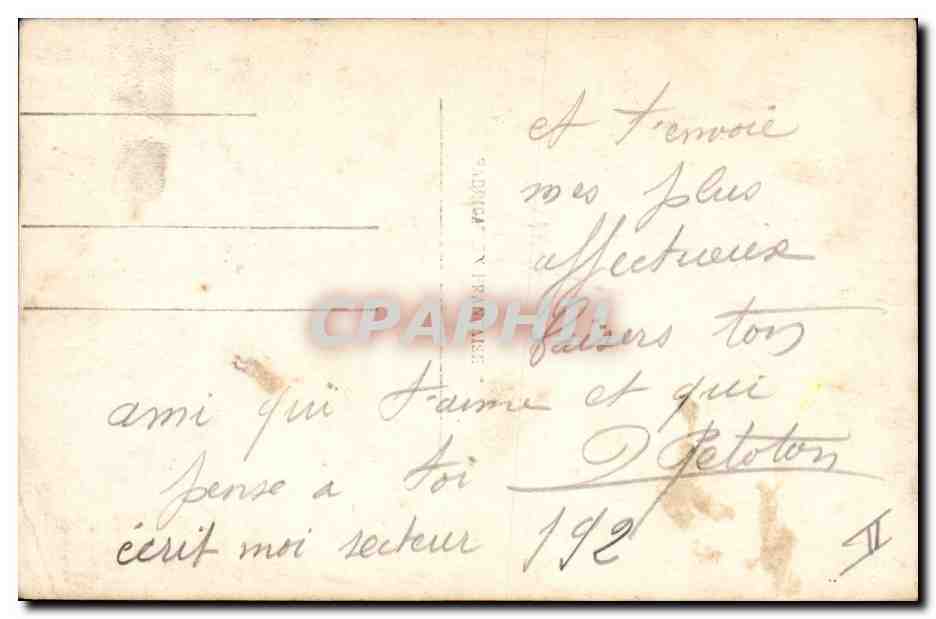 et t'envoie
mes plus
affectueux
baisers ton
ami qui t'aime et qui
pense a toi
Petoton
écrit moi secteur 192
II
FABRICATION FRANÇAISE
CPAPHIL